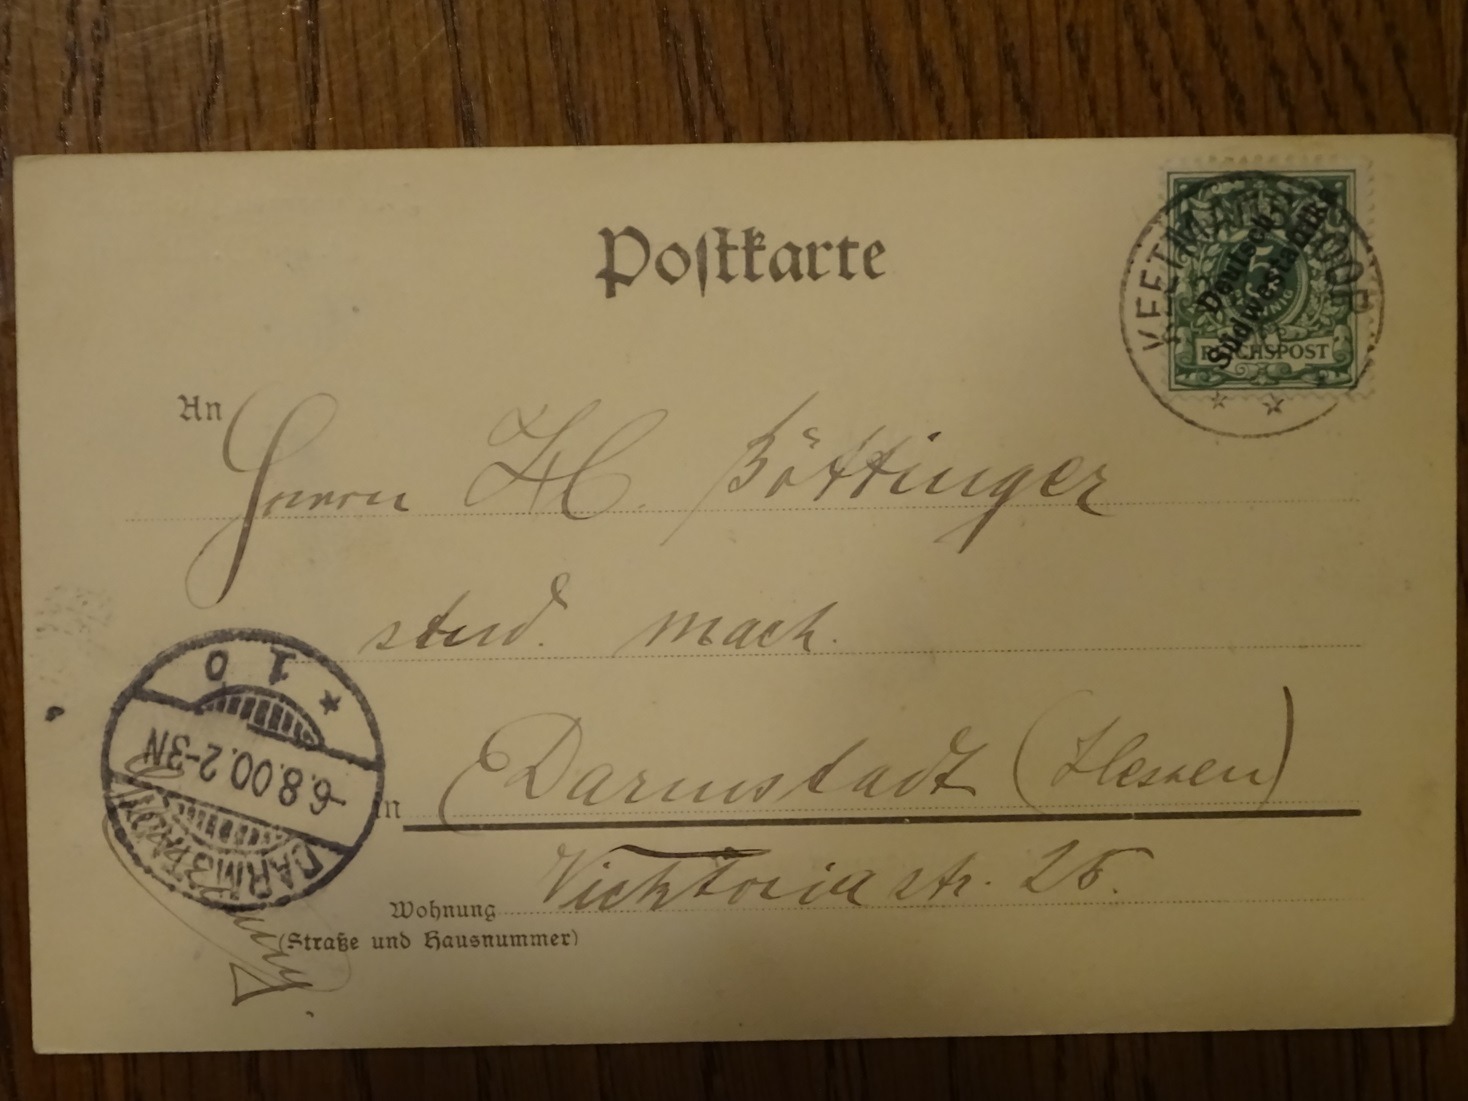 Postkarte
KEETMANSHOOP
Deutsch-
Südwestafrika
5
PFENNIG
REICHSPOST
An
Herrn H. Böttinger
stud. mach.
in Darmstadt (Hessen)
Wohnung Vicktoriastr. 26.
(Straße und Hausnummer)
DARMSTADT
-6.8.00.2-3N
* 1 0